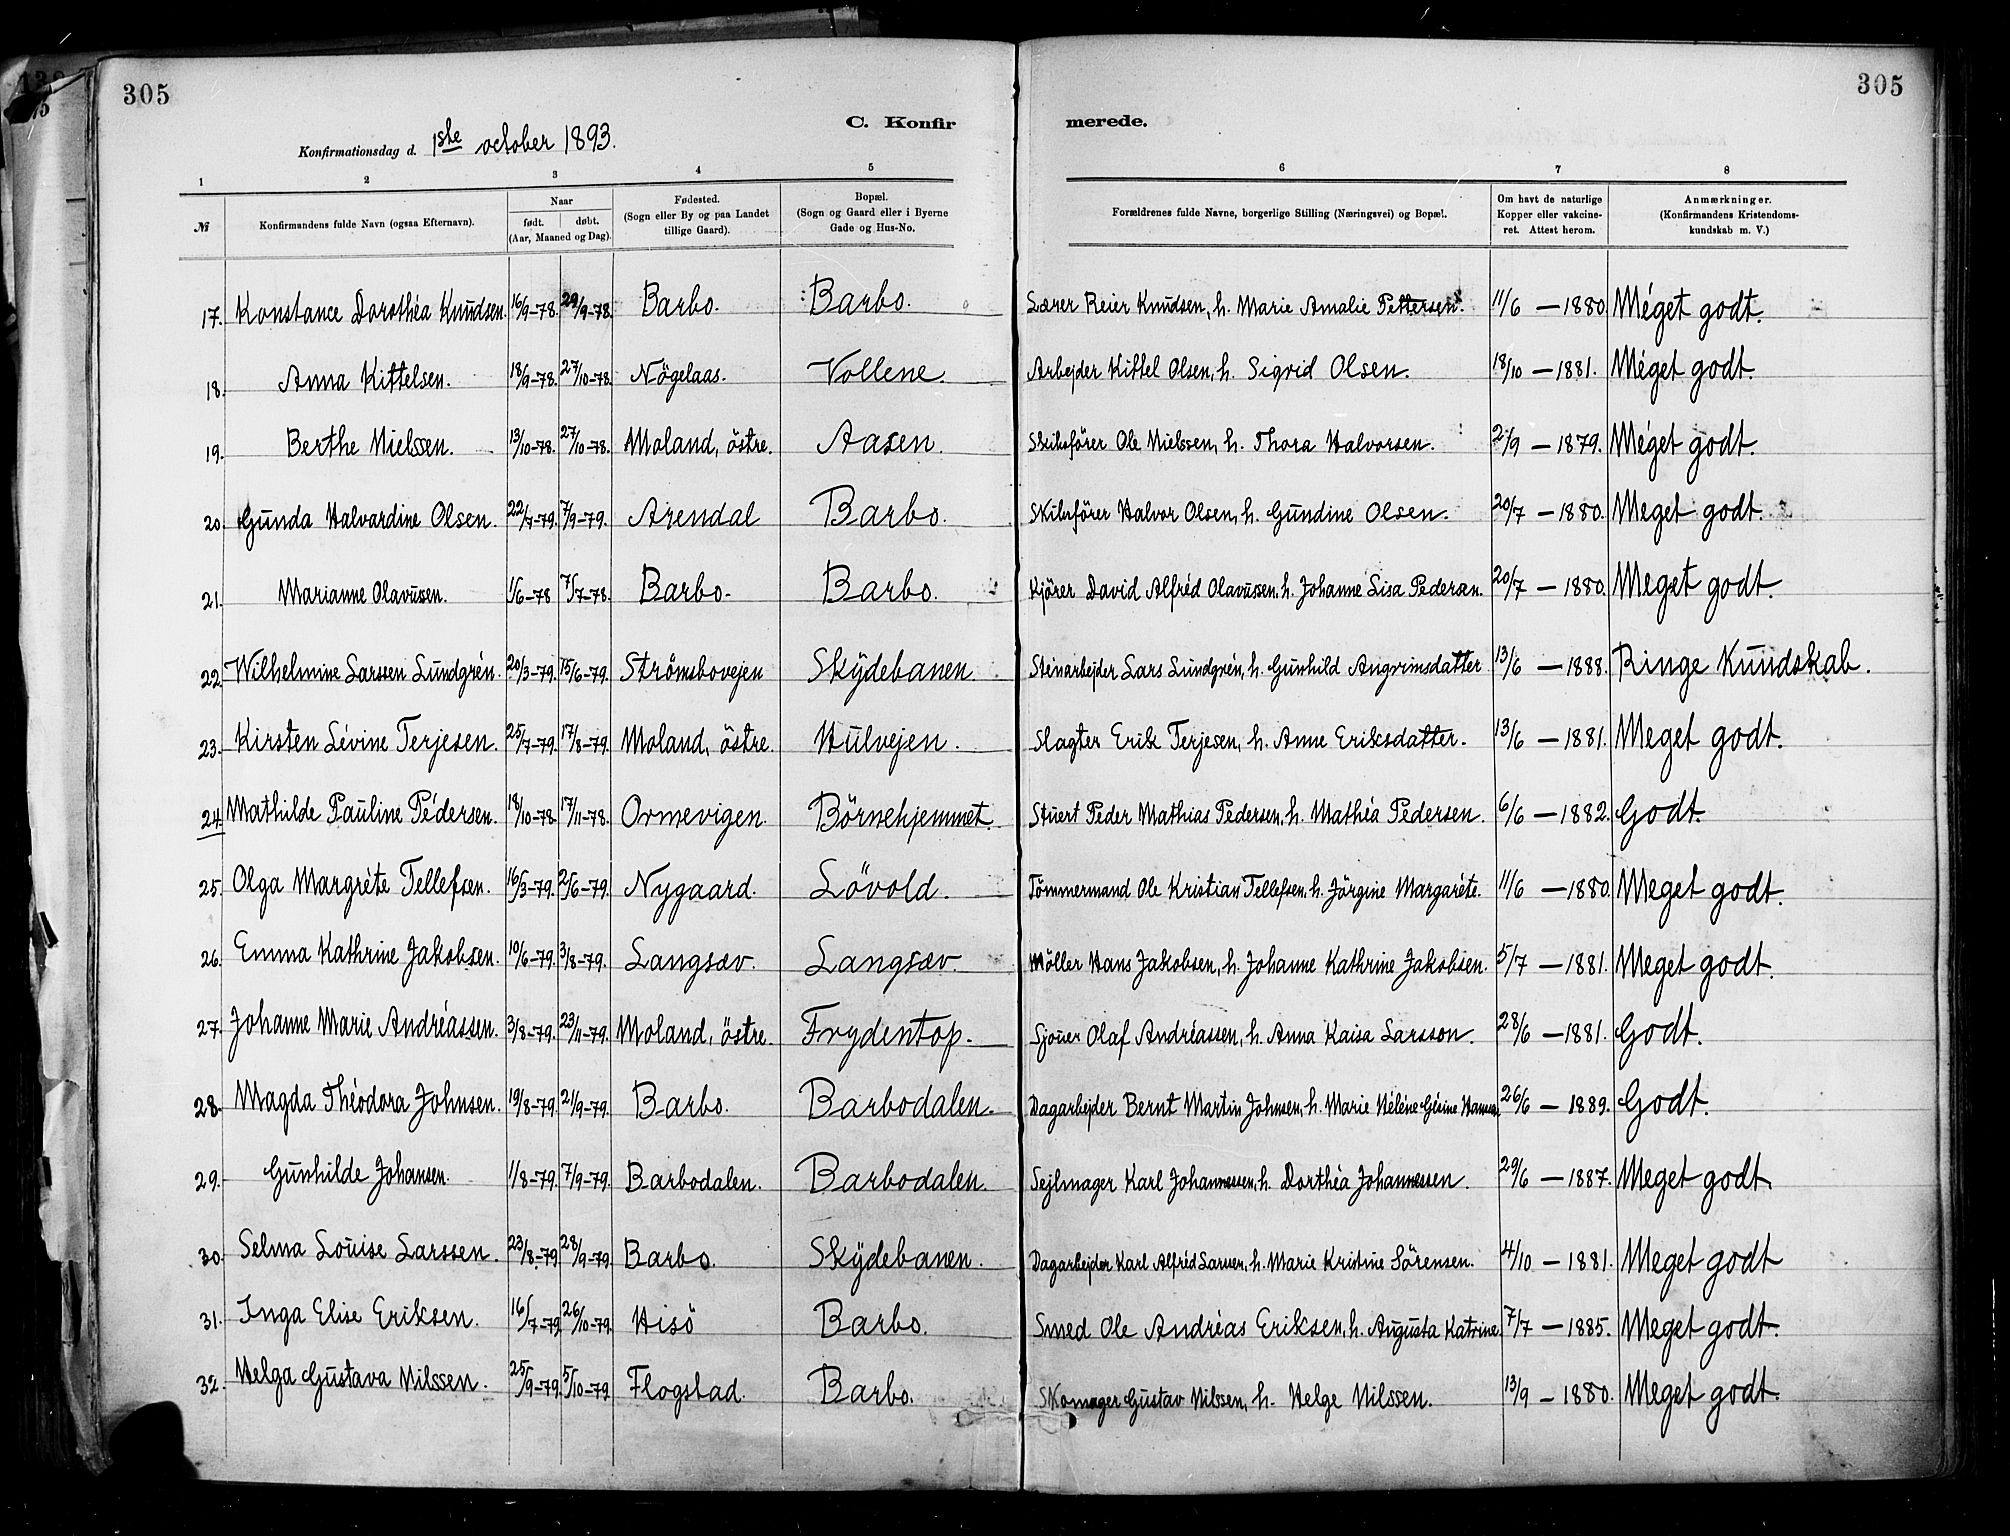 305
305
C. Konfir merede.
Konfirmationsdag d. 1ste october 1893.
1 2 3 4 5 6 7 8
№ Konfirmandens fulde Navn (ogsaa Efternavn). Naar født. døbt. (Aar, Maaned og Dag). Fødested. (Sogn eller By og paa Landet tillige Gaard). Bopæl. (Sogn og Gaard eller i Byerne Gade og Hus-No. Forældrenes fulde Navne, borgerlige Stilling (Næringsvei) og Bopæl. Om havt de naturlige Kopper eller vakcineret. Attest herom. Anmærkninger. (Konfirmandens Kristendomskundskab m. V.)
17. Konstance Dorothéa Knudsen. 16/9-78. 29/9-78. Barbo. Barbo. Lærer Reier Knudsen, h. Marie Amalie Pettersen. 11/6 — 1880. Méget godt.
18. Anna Kittelsen. 18/9-78. 27/10-78. Nögelaas. Vollene. Arbejder Kittel Olsen, h. Sigrid Olsen. 18/10 — 1881. Méget godt.
19. Berthe Nielssen. 13/10-78. 27/10-78. Moland, östre. Aasen. Skibsförer Ole Nielssen, h. Thora Halvorsen. 2/9 — 1879. Méget godt.
20. Gunda Halvardine Olsen. 22/7-79. 7/9-79. Arendal Barbo. Skibsförer Halvor Olsen, h. Gundine Olsen. 20/7 — 1880. Meget godt.
21. Marianne Olavusen. 1/6-78 7/7-78. Barbo. Barbo. Kjörer David Alfréd Olavussen, h. Johanne Lisa Pedersen. 20/7 — 1880. Meget godt.
22. Wilhelmine Larssen Lundgrén. 20/3-79. 15/6-79. Strömsbovejen Skydebanen. Stenarbejder Lars Lundgrén, h. Gunhild Angrimsdatter 13/6 — 1888. Ringe Kundskab.
23. Kirsten Lévine Terjesen. 25/7-79. 17/8-79. Moland, östre. Hulvejen. Slagter Erik Terjesen, h. Anne Eriksdatter. 13/6 — 1881. Meget godt.
24. Mathilde Pauline Pédersen. 18/10-78. 17/11-78. Ormevigen. Börnehjemmet. Stuert Peder Mathias Pedersen, h. Mathéa Pedersen. 6/6 — 1882. Godt.
25. Olga Margréte Tellefsen. 16/3-79. 2/6-79. Nygaard. Lövold. Tömmermand Ole Kristian Tellefsen, h. Jörgine Margaréte. 11/6 — 1880. Meget godt.
26. Emma Kathrine Jakobsen. 10/6-79. 3/8-79. Langsæv. Langsæv. Möller Hans Jakobsen, h. Johanne Kathrine Jakobsen. 5/7 — 1881. Meget godt.
27. Johanne Marie Andréassen. 3/8-79. 23/11-79. Moland, östre. Frydentop. Sjouer Olaf Andréassen, h. Anna Kaisa Larsson. 28/6 — 1881. Godt.
28. Magda Théodora Johnsen. 19/8-79. 21/9-79. Barbo. Barbodalen. Dagarbejder Bernt Martin Johnsen, h. Marie Héléne Gésine Hansen. 26/6 — 1889. Godt.
29. Gunhilde Johansen. 1/8-79. 7/9-79. Barbodalen. Barbodalen. Sejlmager Karl Johannessen, h. Dorthéa Johannessen. 29/6 — 1887. Meget godt.
30. Selma Louise Larssen. 23/8-79 28/9-79. Barbo. Skydebanen. Dagarbejder Karl Alfréd Larssen, h. Marie Kristine Sörensen. 4/10 — 1881. Meget godt
31. Inga Elise Eriksen. 16/7-79. 26/10-79. Hisö Barbo. Smed Ole Andréas Eriksen, h. Augusta Katrine. 7/7 — 1885. Meget godt.
32. Helga Gustava Nilssen. 25/9-79. 5/10-79. Flogstad. Barbo. Skomager Gustav Nilssen, h. Helge Nilssen. 13/9 — 1880. Meget godt.